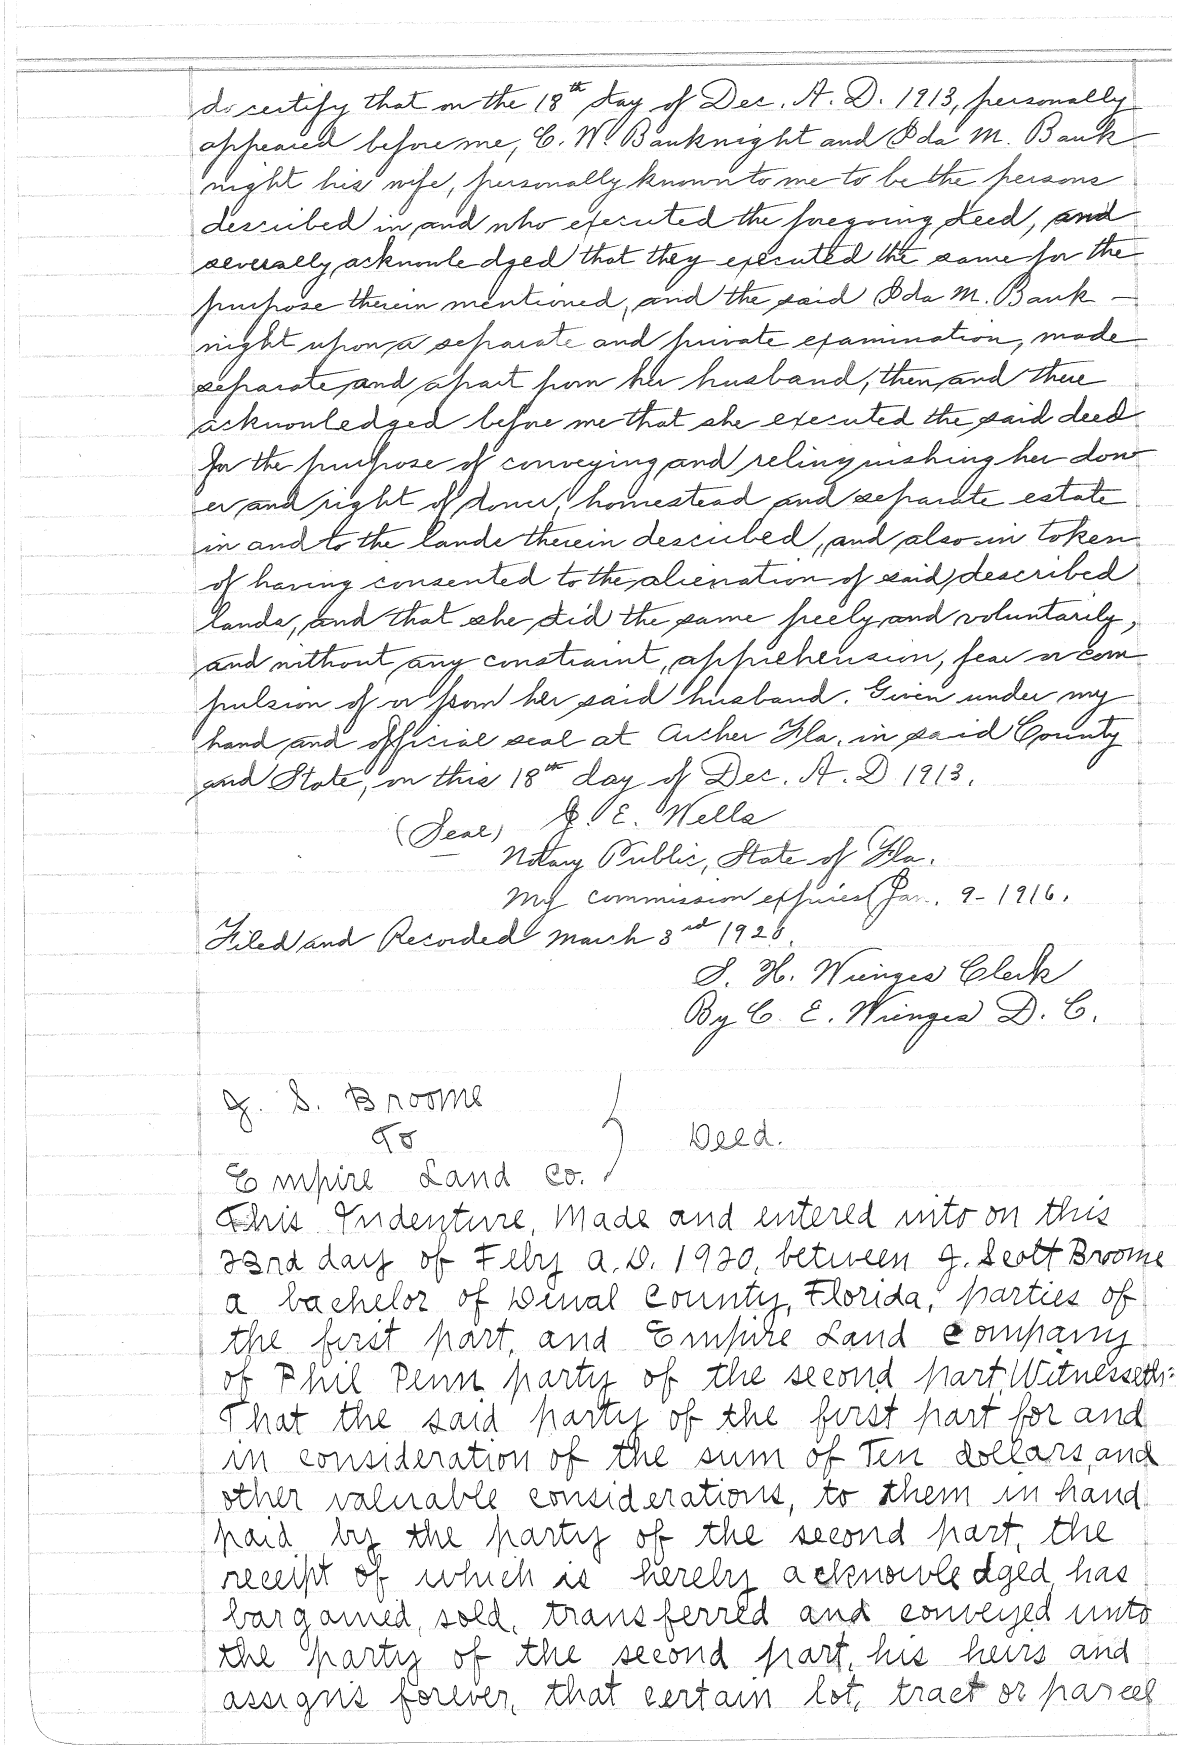 do certify that on the 18th day of Dec. A. D. 1913, personally
appeared before me, C. W. Banknight and Ida M. Bank
night his wife, personally known to me to be the persons
described in and who executed the foregoing deed, and
severally acknowledged that they executed the same for the
purpose therein mentioned, and the said Ida M. Bank-
night upon a separate and private examination, made
separate and apart from her husband, then and there
acknowledged before me that she executed the said deed
for the purpose of conveying and relinquishing her dow
er and right of dower, homestead and separate estate
in and to the lands therein described, and also in token
of having consented to the alienation of said described
lands, and that she did the same freely and voluntarily,
and without any constraint, apprehension, fear or com
pulsion of or from her said husband. Given under my
hand and official seal at Archer Fla, in said County
and State, on this 18th day of Dec. A. D 1913.
(Seal) J. E. Wells
Notary Public, State of Fla.
My commission expires Jan. 9-1916.
Filed and Recorded March 3rd 1920.
S. H. Wienges Clerk
By C. E. Wienges D. C.
J. S. Broome
To
Deed.
Empire Land Co.
This Indenture, Made and entered into on this
23rd day of Feby A.D. 1920, between J. Scott Broome
a bachelor of Duval County, Florida, parties of
the first part, and Empire Land Company
of Phil Penn party of the second part, Witnesseth:
That the said party of the first part for and
in consideration of the sum of Ten dollars, and
other valuable considerations, to them in hand
paid by the party of the second part, the
receipt of which is hereby acknowledged, has
bargained, sold, transferred and conveyed unto
the party of the second part, his heirs and
assigns forever, that certain lot, tract or parcel